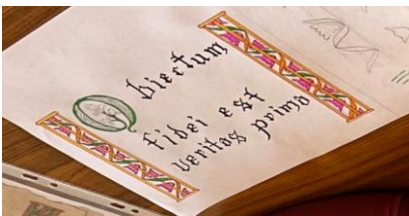 Obiectum
fidei est
veritas prima